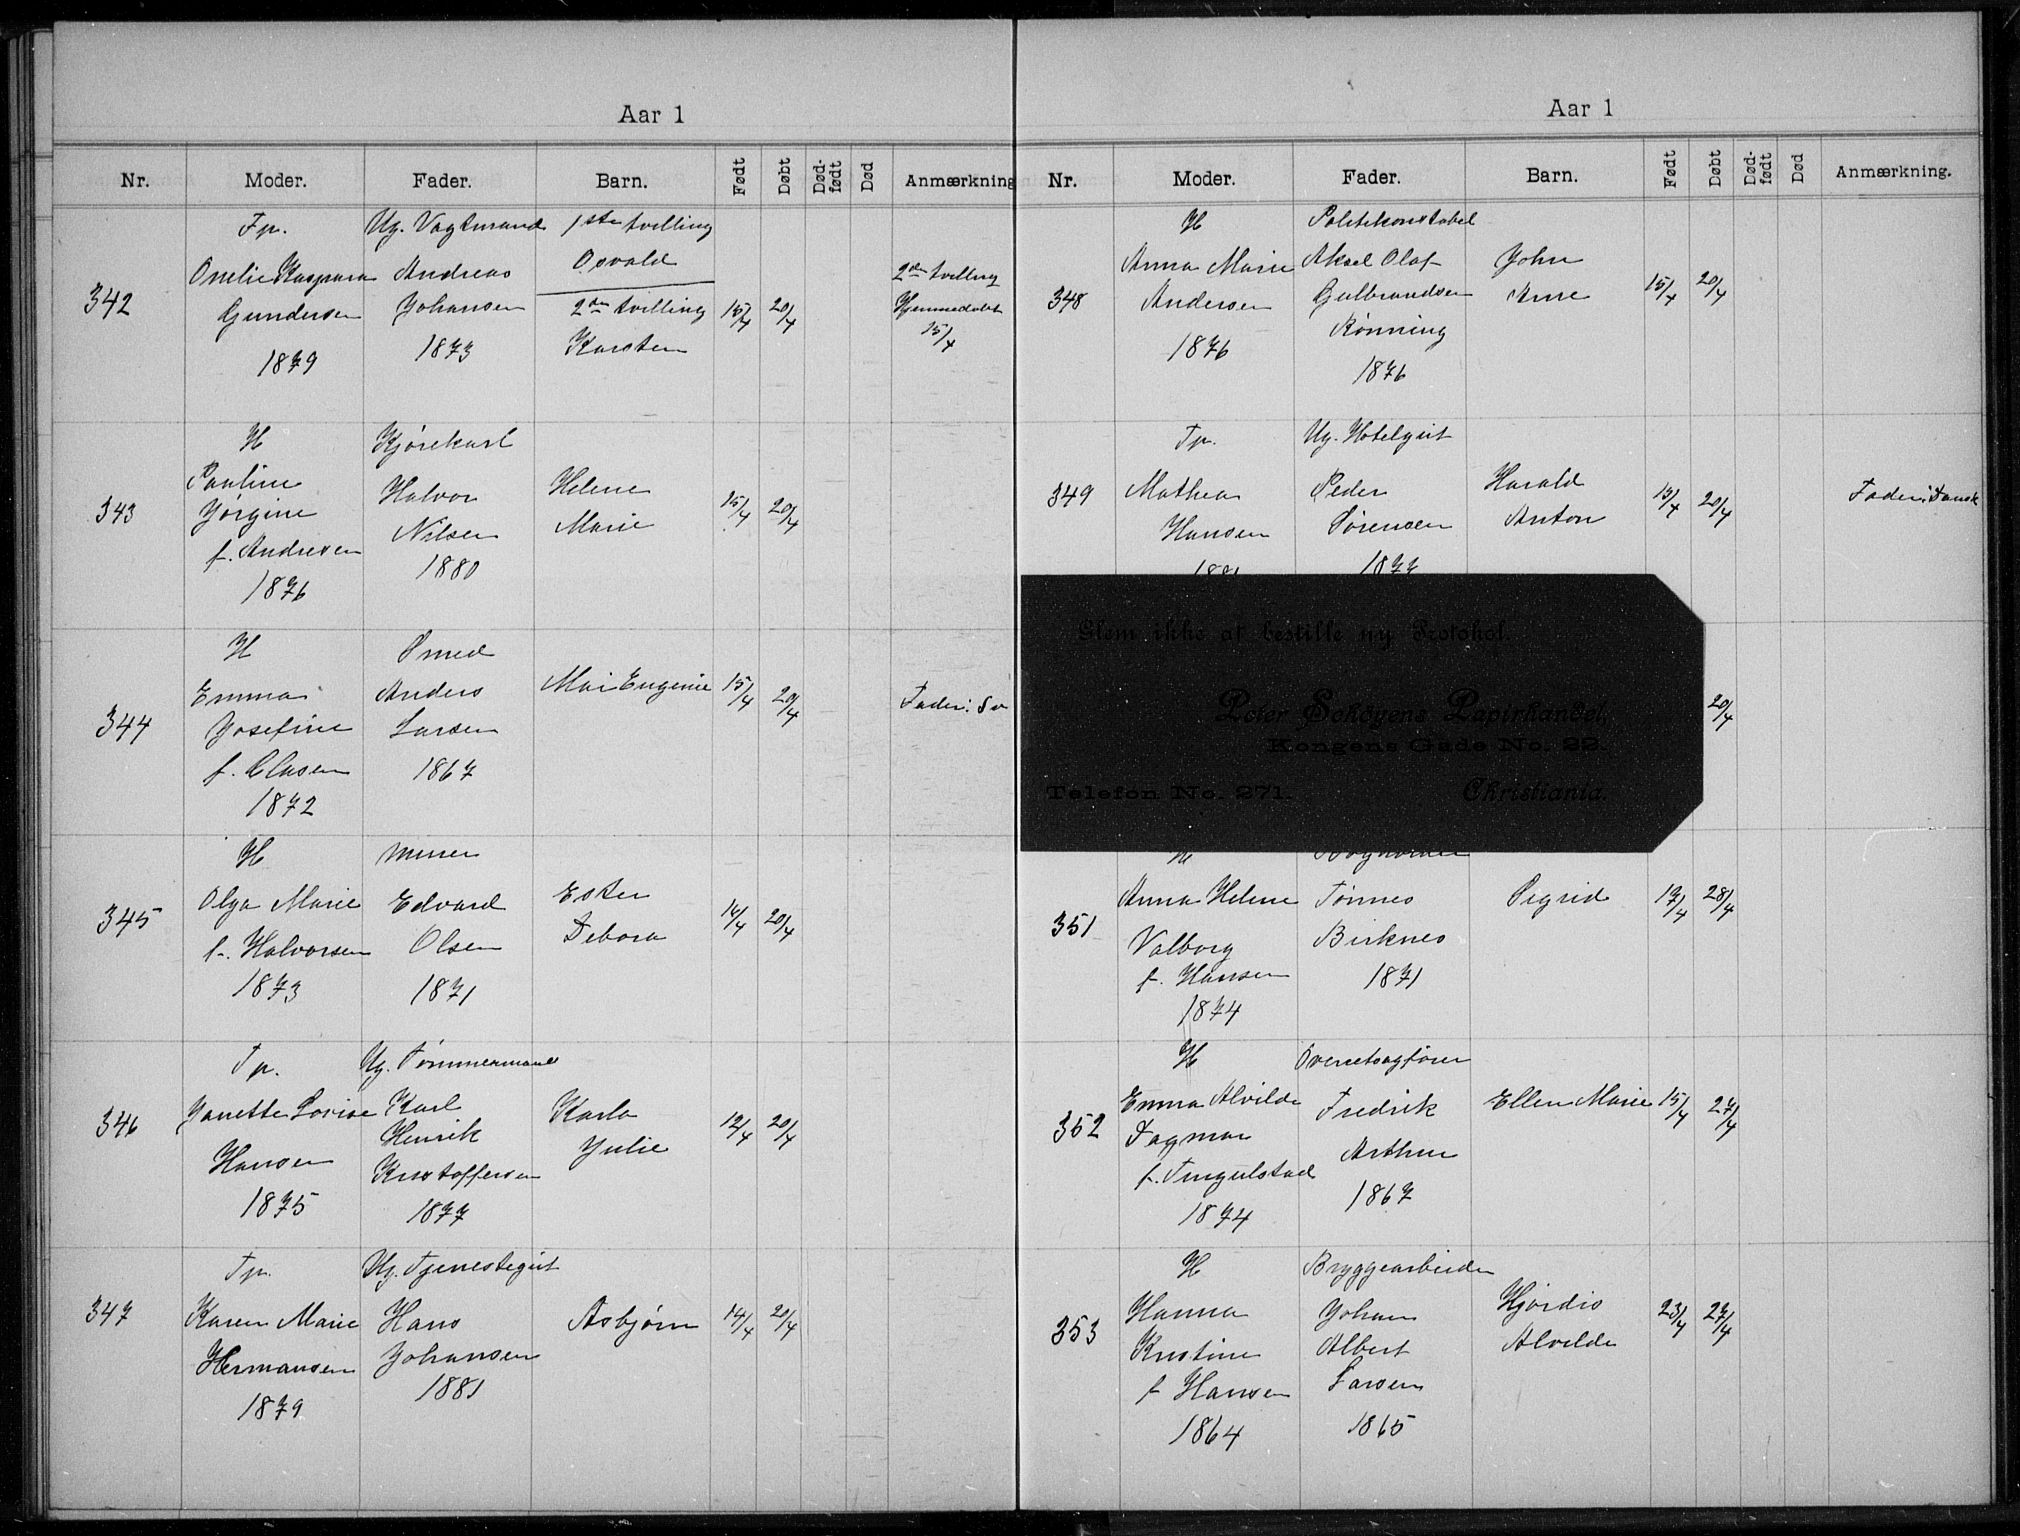 Aar 1
Nr. Moder. Fader. Barn. Født Døbt Død-født Død Anmærkning
342
Tp.
Onelie Kaspara
Gundersen
1879
Ug. Vagtmand
Andreas
Johansen
1873
1ste tvilling
Osvald
2den tvilling
Karsten
15/4 20/4
2den tvilling
Hjemmedøbt
15/4
343
H
Pauline
Jørgine
f. Andresen
1876
Kjørekarl
Halvor
Nilsen
1880
Helene
Marie
15/4 20/4
344
H
Emma
Josefine
f. Clasen
1872
Smed
Anders
Larsen
1867
Mai Eugenie
15/4 20/4
Fader: Sv
345
H
Olga Marie
f. Halvorsen
1873
Murer
Edvard
Olsen
1871
Ester
Debora
14/4 20/4
346
Tp.
Janette Lovise
Hansen
1875
Ug. Tømmermand
Karl
Henrik
Kristoffersen
1877
Karla
Julie
12/4 20/4
347
Tp.
Karen Marie
Hermansen
1879
Ug. Tjenestegut
Hans
Johansen
1881
Asbjørn
14/4 20/4
Aar 1
Nr. Moder. Fader. Barn. Født Døbt Død-født Død Anmærkning.
348
H
Anna Marie
Andersen
1876
Politikonstabel
Aksel Olaf
Gulbrandsen
Rønning
1876
John
Arne
15/4 20/4
349
Tp.
Mathea
Hansen
1881
Ug. Hotelgut
Peder
Sørensen
1877
Harald
Anton
13/4 20/4
Fader: Dansk
Glem ikke at bestille ny Protokol.
Peter Sohøgens Papirhandel,
Kongens Gade No. 22.
Telefon No. 271. Christiania.
20/4
351
H
Anna Helene
Valborg
f. Hansen
1874
Tønnes
Birknes
1871
Sigrid
17/4 28/4
352
H
Emma Alvilde
Dagmar
f. Tingulstad
1874
Overretsagfører
Fredrik
Arthur
1867
Ellen Marie
15/4 27/4
353
H
Hanna
Kristine
f Hansen
1864
Bryggearbeider
Johan
Albert
Larsen
1865
Hjørdis
Alvilde
23/4 27/4